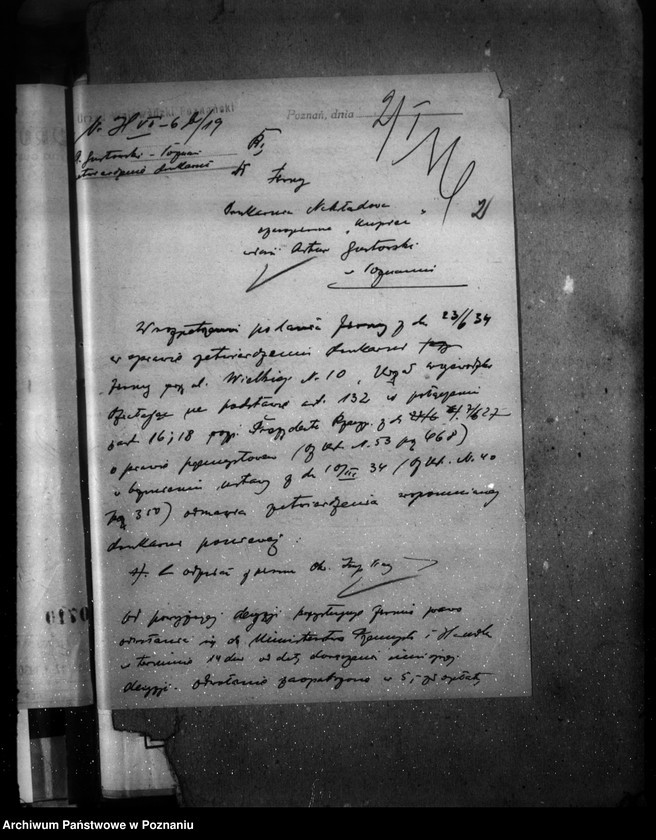 Poznań, dnia
Nr. VI-6 /19
Gustowski - Poznań
zatwierdzenie drukarni
Firmy
Drukarnia Nakładowa
czasopisma „Kupiec”
właśc. Artur Gustowski
w Poznaniu
2
W rozpatrzeniu podania firmy z dn. 23/6 34
w sprawie zatwierdzenia drukarni
firmy przy ul. Wielkiej N. 10, Urząd Wojewódzki
na podstawie art. 132 w połączeniu
z art. 16 i 18 rozp. Prezydenta Rzeczp. z dn. 7/6 27
o prawie przemysłowem (Dz. Ust. N. 53 poz. 468)
w brzmieniu ustawy z dn. 10/III 34 (Dz. Ust. N. 40
poz. 350) odmawia zatwierdzenia wspomnianej
drukarni ponieważ:
odpisać z pisma
Od powyższej decyzji przysługuje firmie prawo
odwołania się do Ministerstwa Przemysłu i Handlu
w terminie 14 dni od daty doręczenia niniejszej
decyzji. Odwołanie zaopatrzone w 5,- zł opłaty
Archiwum Państwowe w Poznaniu